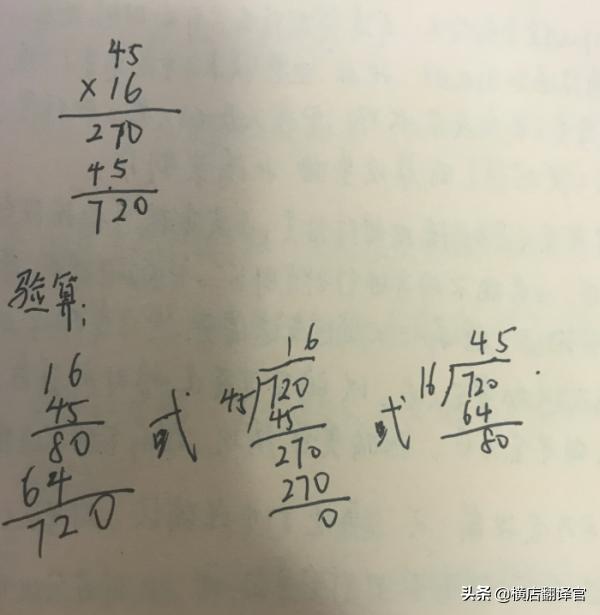 45
×16
270
45
720
验算：
16
45
80
64
720
或
16
45 720
45
270
270
0
或
45
16 720
64
80
头条 @横店翻译官